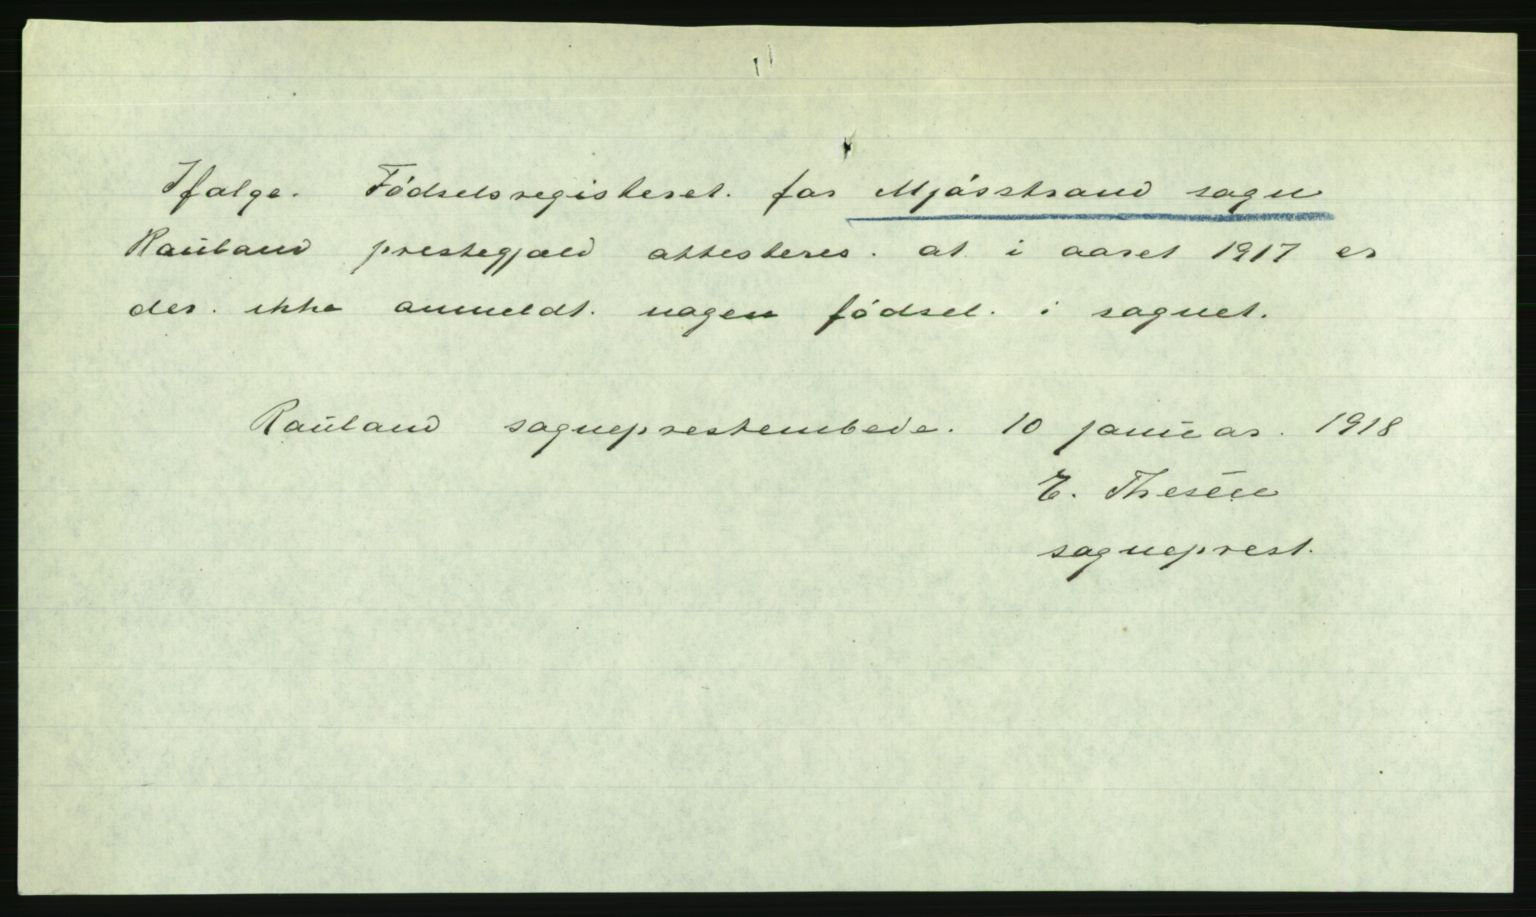 Ifølge. Fødselsregisteret. for Mjøsstrand sogn
Rauland prestegjæld attesteres. at i aaret 1917 er
der. ikke anmeldt. nogen fødsel. i sognet.
Rauland sogneprestembede. 10 januar. 1918
E. Thesén
sogneprest.